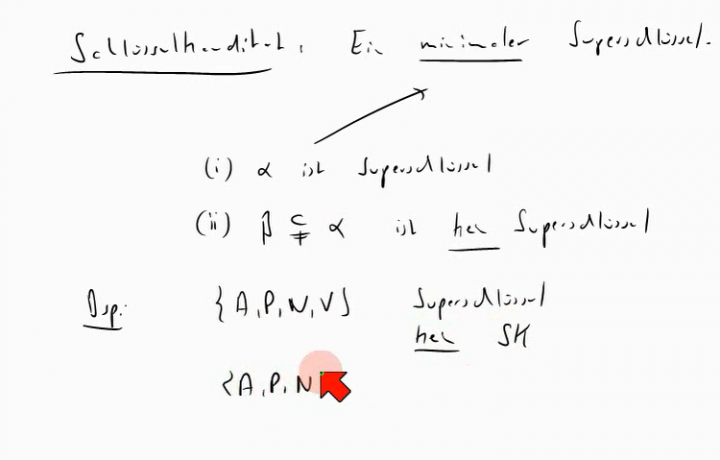 Schlüsselkandidat: Ein minimaler Superschlüssel.
(i) α ist Superschlüssel
(ii) β ⊊ α ist kein Superschlüssel
Bsp.: {A,P,N,V} Superschlüssel
kein SK
{A,P,N